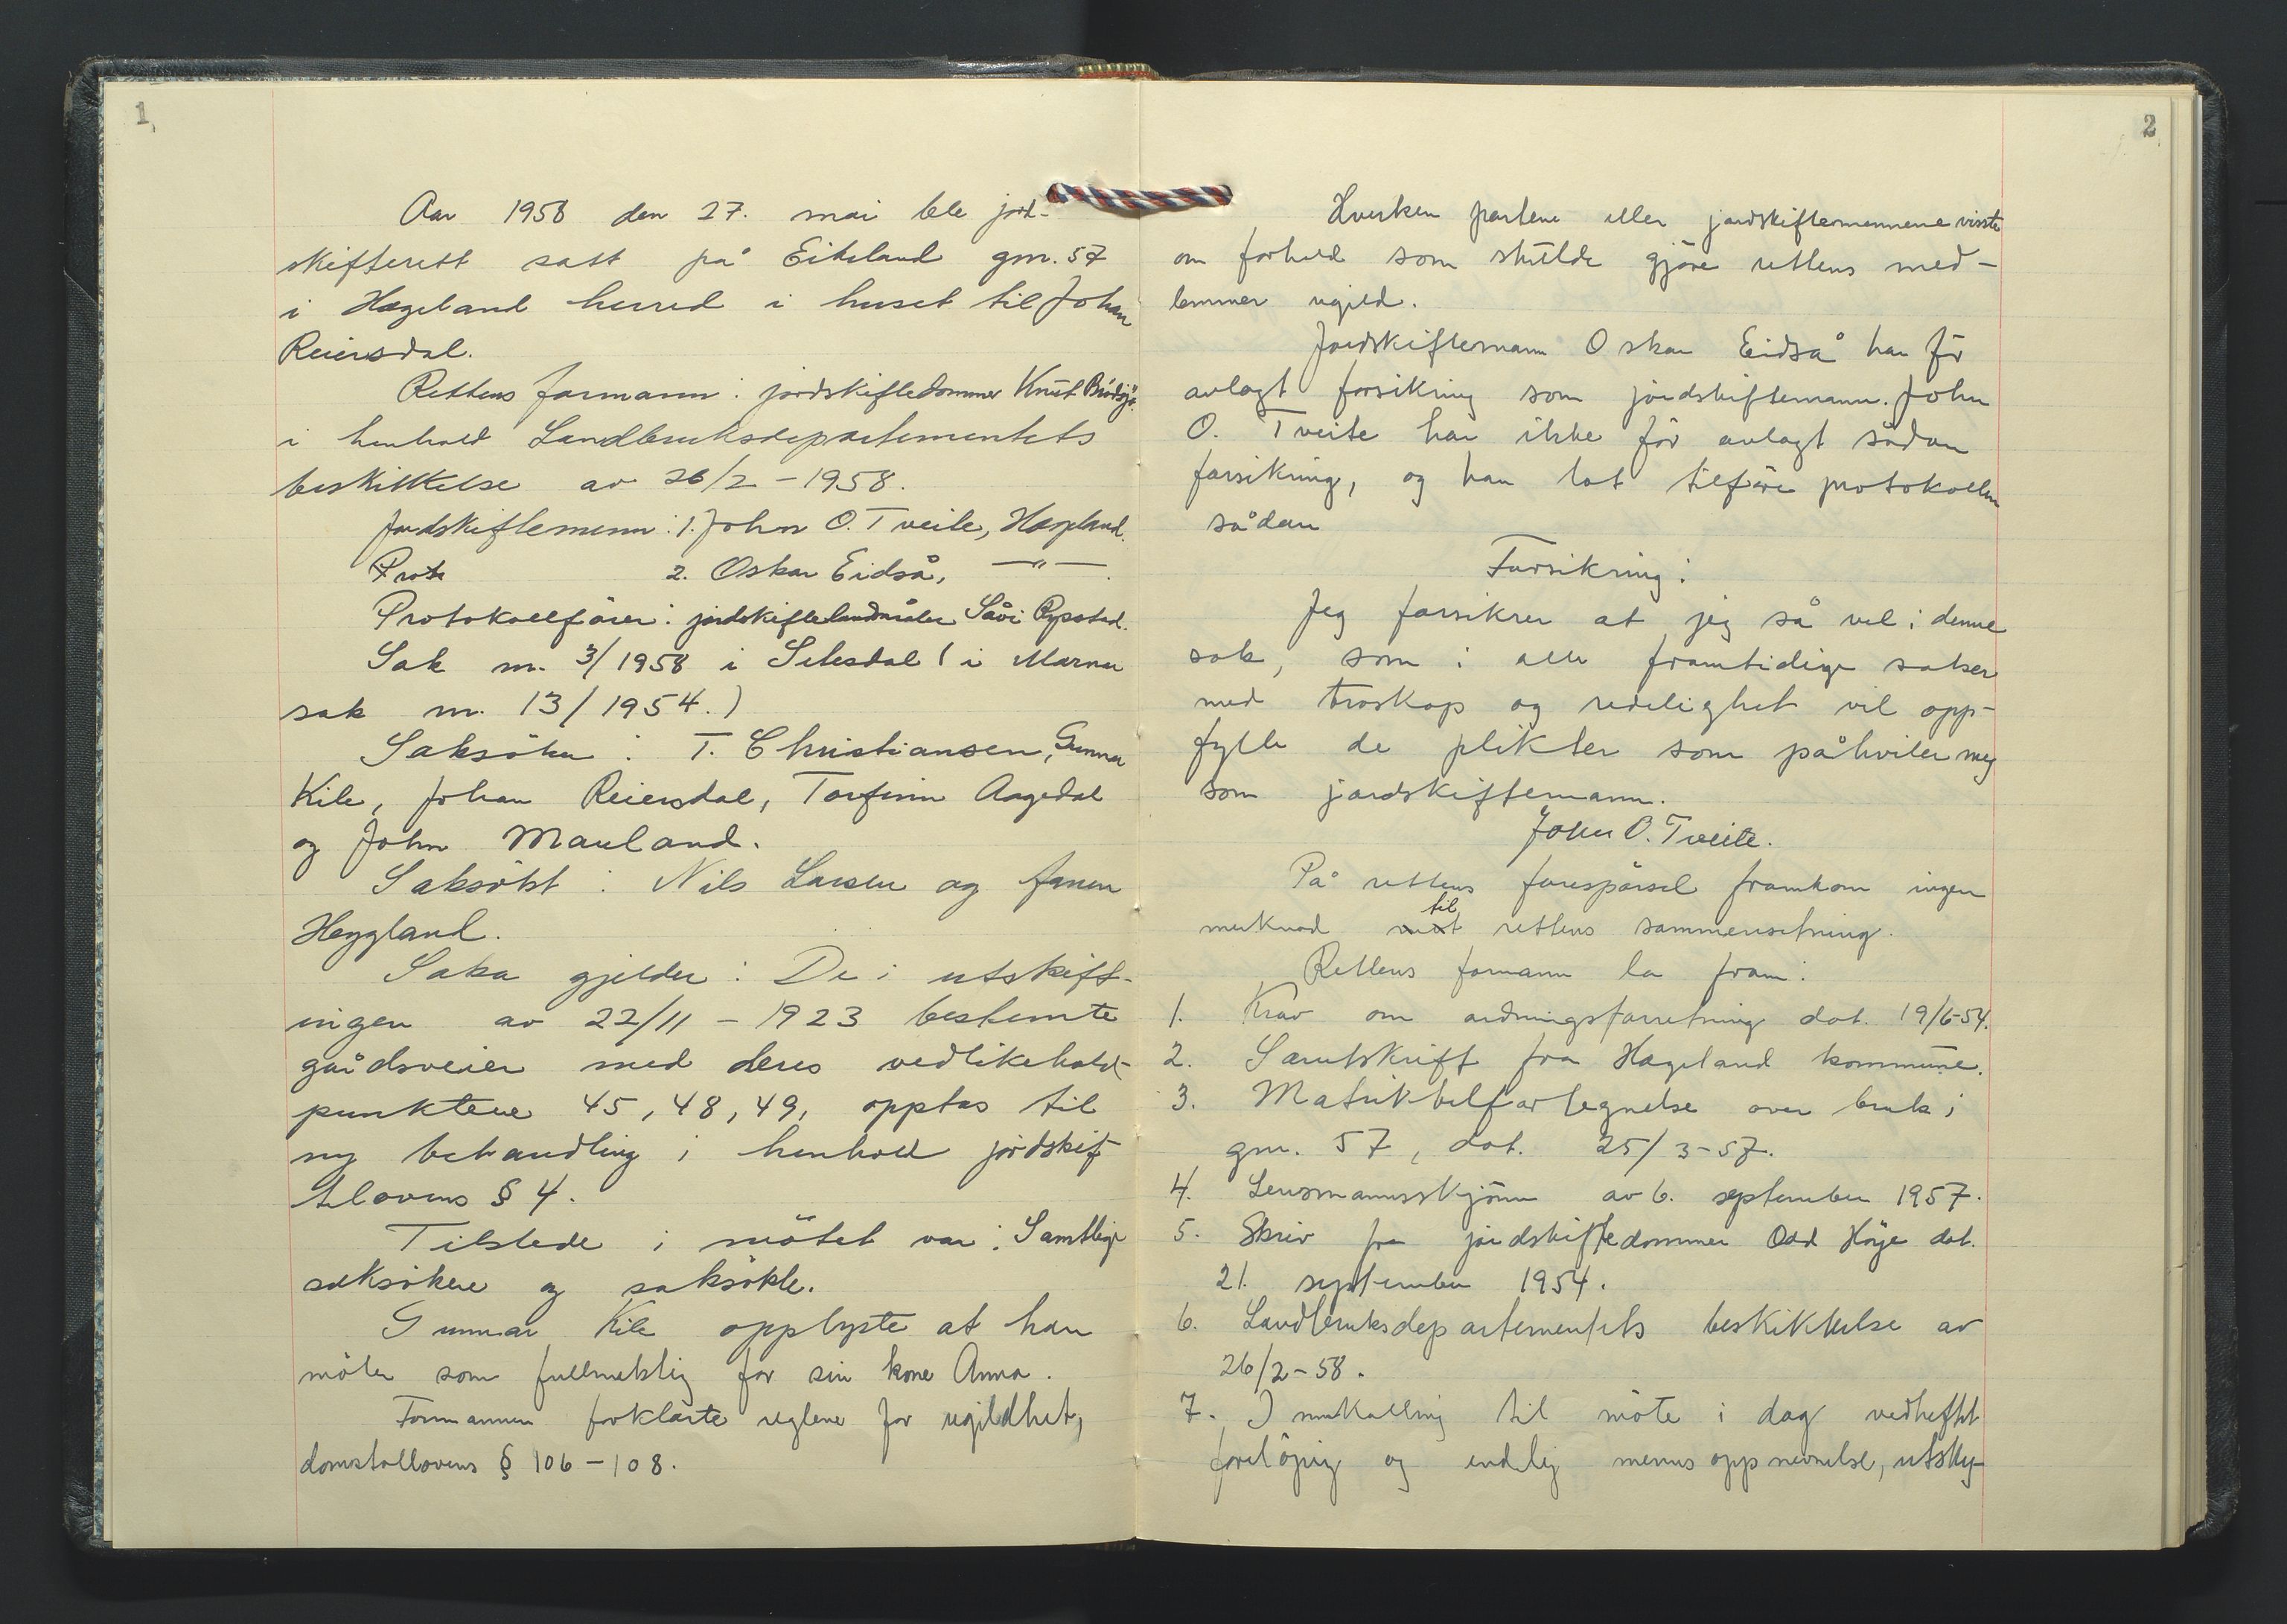 1
Aar 1958 den 27. mai ble jord-
skifterett satt på Eikeland gnr. 57
i Hægeland herred i huset til Johan
Reiersdal.
Rettens formann: jordskiftedommer Knut
i henhold Landbruksdepartementets
beskikkelse av 26/2 - 1958.
Jordskiftemenn: 1. John O. Tveite, Hægeland.
Prot 2. Oskar Eidså, —"—.
Protokollfører: jordskiftelandmåler Rysstad.
Sak nr. 3/1958 i Setesdal (i Marnar
sak nr. 13/1954.)
Saksöker: T. Christiansen, Gunnar
Kile, Johan Reiersdal, Torfinn Aagedal
og John Mauland.
Saksökt: Nils Larsen og
Heggland.
Saka gjelder: De i utskift-
ingen av 22/11 - 1923 bestemte
gårdsveier med deres vedlikehold-
punktene 45, 48, 49, opptas til
ny behandling i henhold jordskif-
telovens § 4.
Tilstede i mötet var: Samtlige
saksökere og saksökte.
Gunnar Kile opplyste at han
möter som fullmektig for sin kone Anna.
Formannen forklarte reglene for ugildhet,
domstollovens § 106 - 108.
2
Hverken partene eller jordskiftemennene visste
om forhold som skulde gjöre rettens med-
lemmer ugild.
Jordskiftemann Oskar Eidså har för
avlagt forsikring som jordskiftemann. John
O. Tveite har ikke för avlagt sådan
forsikring, og han lot tilföre protokollen
sådan
Forsikring:
Jeg forsikrer at jeg så vel i denne
sak, som i alle framtidige saker
med troskap og redelighet vil opp-
fylle de plikter som påhviler meg
som jordskiftemann.
John O. Tveite.
På rettens forespörsel framkom ingen
til
merknad mot rettens sammensetning.
Rettens formann la fram:
1. Krav om ordningsforretning dat. 19/6-54.
2. Særutskrift fra Hægeland kommune.
3. Matrikkelfortegnelse over bruk i
gnr. 57, dat. 25/3-57.
4. Lensmannsskjönn av 6. september 1957.
5. Skriv fra jordskiftedommer Odd Höye dat.
21. september 1954.
6. Landbruksdepartementets beskikkelse av
26/2-58.
7. Innkalling til möte i dag vedheftet
forelöpig og endelig menns oppnevnelse, utsky-